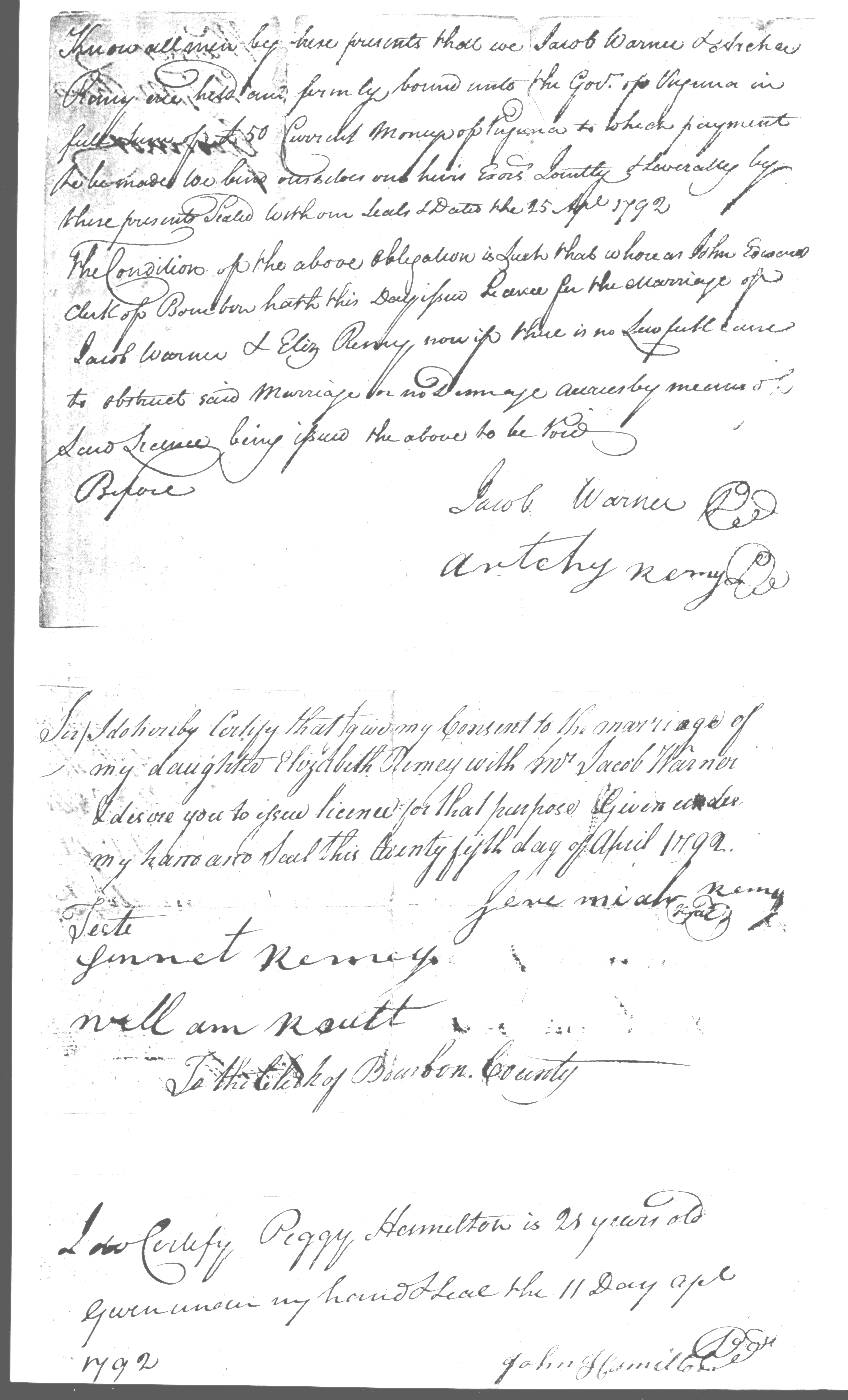 Know all men by these presents that we Jacob Warner & Archer
Remy are held and firmly bound unto the Gov. of Virginia in
full Sum of £50 Current Money of Virginia to which payment
to be made We bind ourselves our heirs Exors Jointly & Severally by
these presents Sealed with our Seals & Dated the 25 Apl 1792
The Condition of the above Obligation is Such that whereas John Edwards
Clerk of Bourbon hath this Day issued Licence for the Marriage of
Jacob Warner & Eliz Remy now if there is no Lawfull cause
to obstruct said Marriage or no Damage accrues by means of
Said Licence being issued the above to be Void
Before
Jacob Warner
artchy Remy
Sir/ I do hereby Certify that I give my Consent to the marriage of
my daughter Elizabeth Remey with Mr Jacob Warner
& desire you to issue licence for that purpose Given under
my hand and Seal this twenty fifth day of April 1792.
Jeremiah Remy
Seal
Teste
Remey
William Routt
To the Clerk of Bourbon County
I do Certify Peggy Hamelton is 21 years old
Given under my hand & Seal the 11 Day apl
1792
John Hamilton